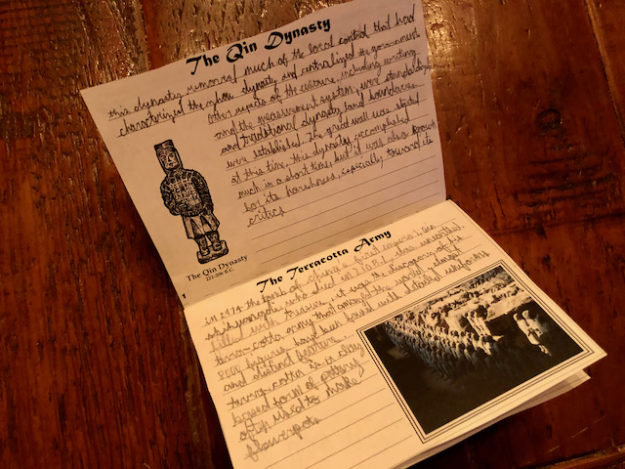 The Qin Dynasty
this dynasty removed much of the local control that had
characterized the dynasty and centralized the government
Other aspects of the including writing
and the measurement system, were standardized,
and traditional dynasty land boundaries
were established. The great wall was
at this time, this dynasty accomplished
much in a short time, but it was also known
for its harshness, especially toward its
critics
The Qin Dynasty
221-206 B.C.
1
The Terracotta Army
in 1974 the tomb of china s first
who died in 210 B.C. was unearthed
filled with treasure, it was the discovery of his
terra-cotta army that amazed the world almost
figures have been found with detailed uniforms
and distinct
terra cotta is a clay
based form of pottery
often used to make
flowerpots